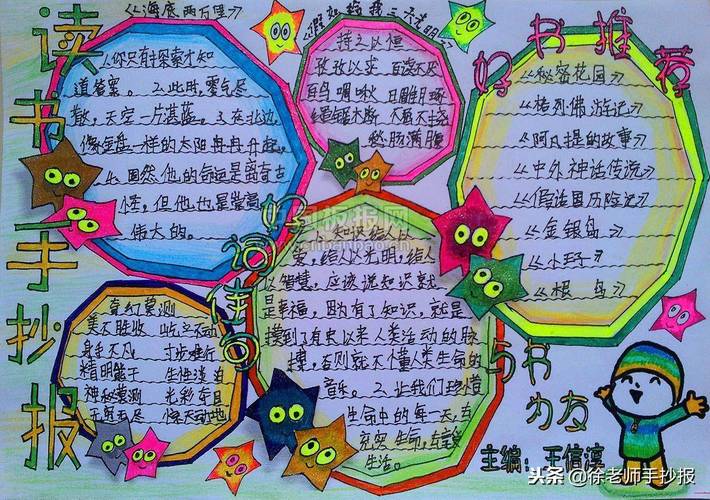 读书手抄报
《海底两万里》
1.你只有探索才知
道答案。2.此时,雾气尽
散,天空一片湛蓝。3.在北边,
像银盘一样的太阳冉冉升起,
4.固然,他的命运是离奇古
怪,但他也是崇高
伟大的。
《假如给我三天光明》
持之以恒
孜孜以求 百读不厌
百鸟啁啾 日雕月琢
不屈不挠
愁肠满腹
好书推荐
《秘密花园》
《格列佛游记》
《阿凡提的故事》
《中外神话传说》
《假话国历险记》
《金银岛》
《小王子》
《根鸟》
好词佳句
奇幻莫测
美不胜收 屹立不动
身手不凡 寸步难行
精明能干 生性淡泊
神秘莫测 光彩夺目
无穷无尽 惊天动地
1.知识给人以
爱,给人以光明,给人
以智慧,应该说知识就
是幸福,因为有了知识,就是
摸到了有史以来人类活动的脉
搏,否则就不懂人类生命的
音乐。2.让我们珍惜
生命中的每一天,去
充实生命,去享受
生活。
与书
为友
主编:王信淳
头条@徐老师手抄报